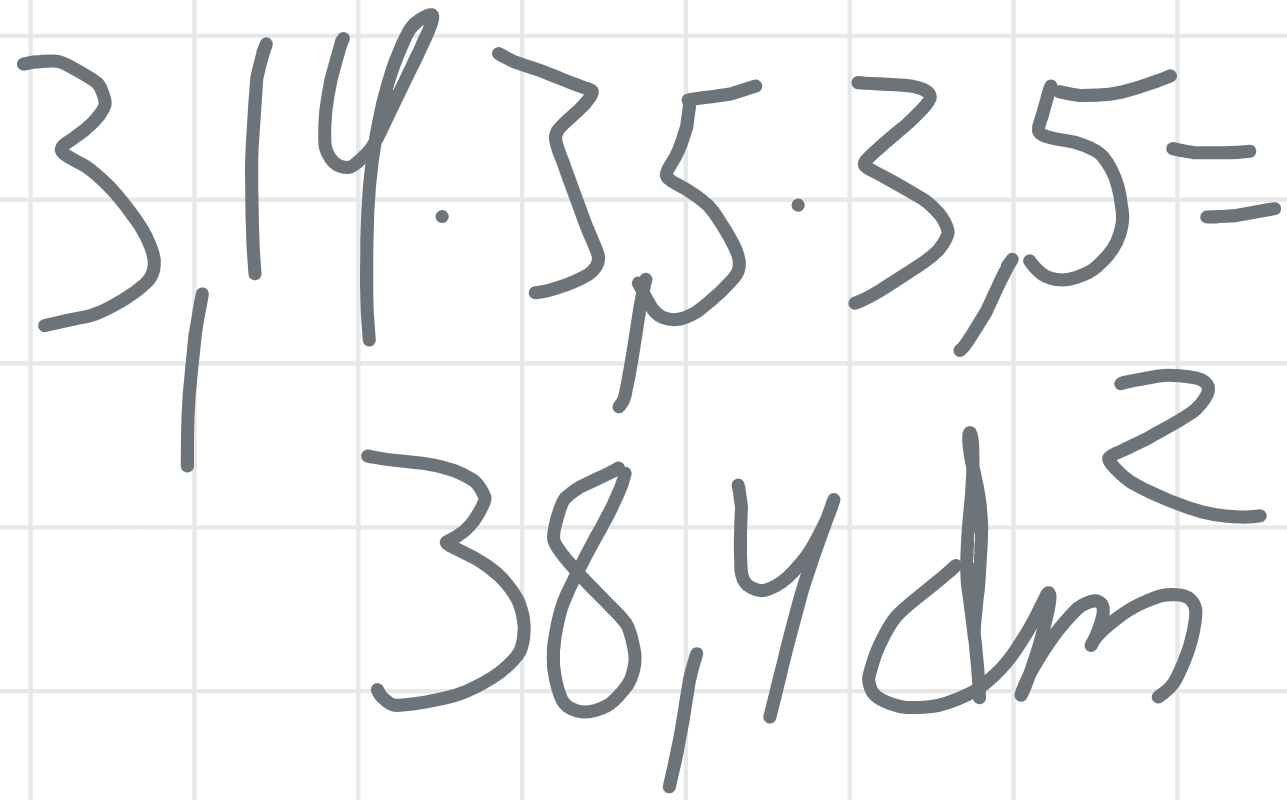 3,14 · 3,5 · 3,5 =
38,4 dm²